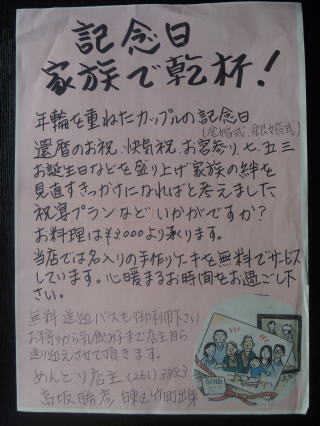 記念日
家族で乾杯!
年輪を重ねたカップルの記念日
(金婚式、銀婚式)
還暦のお祝、快気祝、お宮参り、七五三
お誕生日などを盛り上げ家族の絆を
見直すきっかけになればと考えました
祝宴プランなどいかがですか?
お料理は¥3,000より承ります。
当店では名入りの手作りケーキを無料でサービス
しています。心暖まるお時間をお過ごし下
さい。
無料送迎バスも御利用下さい
お年寄から乳飲み子まで店主自ら
送り迎えさせて頂きます。
めんどり店主 (261)3983
高坂勝彦
50th